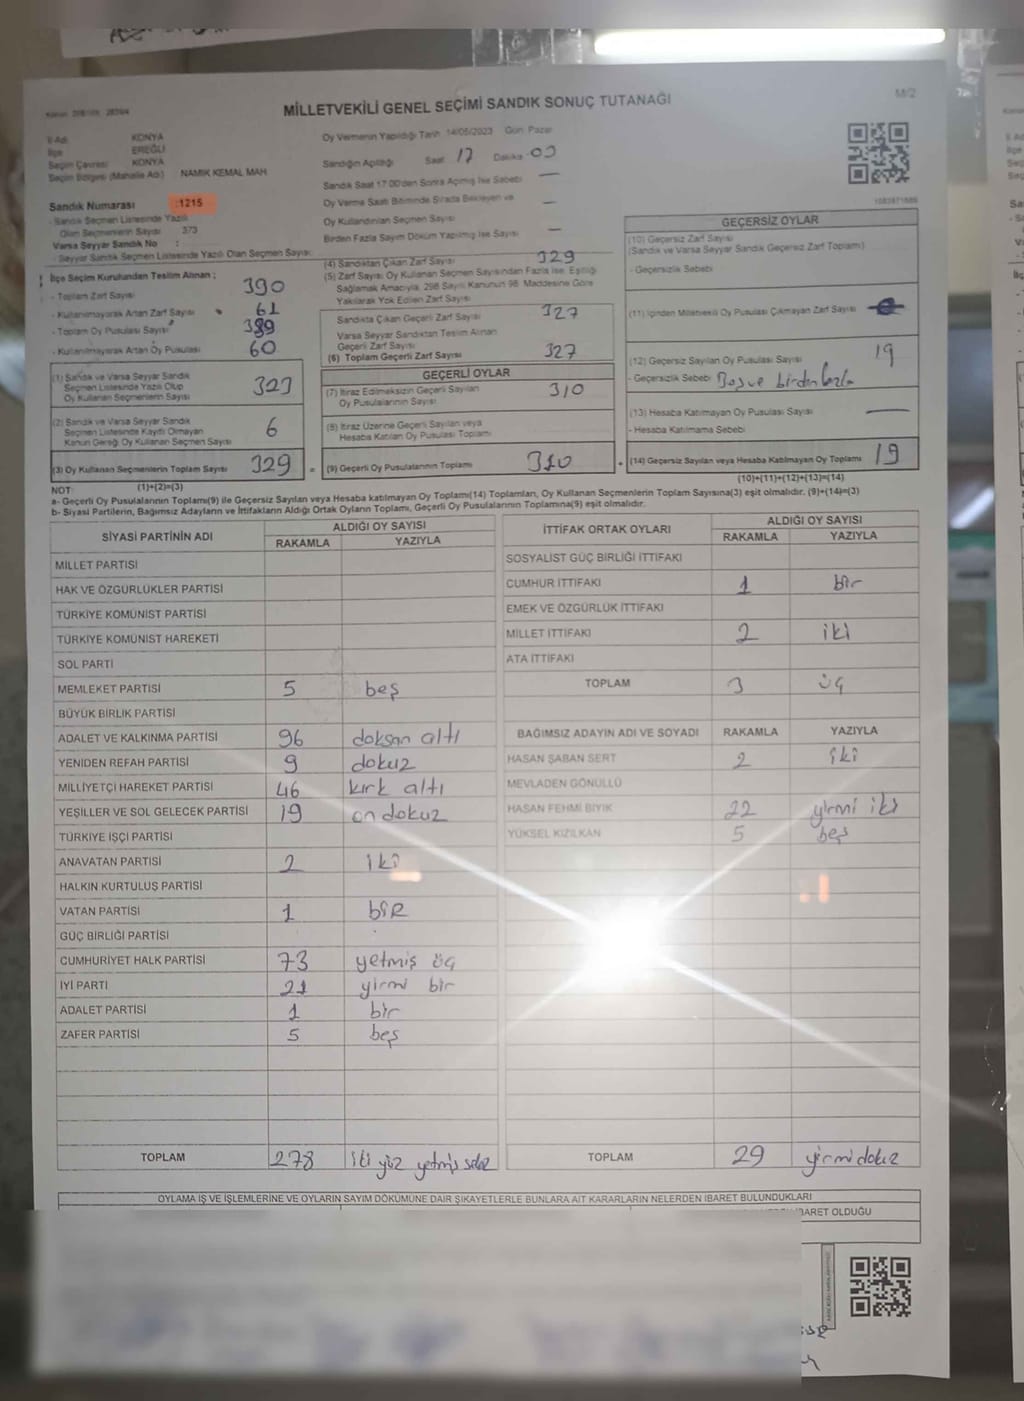 MİLLETVEKİLİ GENEL SEÇİMİ SANDIK SONUÇ TUTANAĞI
M/2
İl Adı KONYA
İlçe EREĞLİ
Seçim Çevresi KONYA
Seçim Bölgesi (Mahalle Adı) NAMIK KEMAL MAH
Sandık Numarası :1215
- Sandık Seçmen Listesinde Yazılı
Olan Seçmenlerin Sayısı 373
Varsa Seyyar Sandık No :
- Seyyar Sandık Seçmen Listesinde Yazılı Olan Seçmen Sayısı:
Oy Vermenin Yapıldığı Tarih 14/05/2023 Gün Pazar
Sandığın Açılışı Saat 17 Dakika 03
Sandık Saat 17:00'den Sonra Açılmış İse Sebebi —
Oy Verme Saati Bitiminde Sırada Bekleyen ve
Oy Kullandırılan Seçmen Sayısı —
Birden Fazla Sayım Döküm Yapılmış İse Sayısı —
İlçe Seçim Kurulundan Teslim Alınan ;
- Toplam Zarf Sayısı 390
- Kullanılmayarak Artan Zarf Sayısı 61
- Toplam Oy Pusulası Sayısı 389
- Kullanılmayarak Artan Oy Pusulası 60
(1) Sandık ve Varsa Seyyar Sandık
Seçmen Listesinde Yazılı Olup
Oy Kullanan Seçmenlerin Sayısı 323
(2) Sandık ve Varsa Seyyar Sandık
Seçmen Listesinde Kayıtlı Olmayan
Kanun Gereği Oy Kullanan Seçmen Sayısı 6
(3) Oy Kullanan Seçmenlerin Toplam Sayısı 329 =
(4) Sandıktan Çıkan Zarf Sayısı 329
(5) Zarf Sayısı Oy Kullanan Seçmen Sayısından Fazla İse, Eşitliği
Sağlamak Amacıyla, 298 Sayılı Kanunun 98. Maddesine Göre
Yakılarak Yok Edilen Zarf Sayısı
Sandıkta Çıkan Geçerli Zarf Sayısı 327
Varsa Seyyar Sandıktan Teslim Alınan
Geçerli Zarf Sayısı
(6) Toplam Geçerli Zarf Sayısı 327
GEÇERLİ OYLAR
(7) İtiraz Edilmeksizin Geçerli Sayılan
Oy Pusulalarının Sayısı 310
(8) İtiraz Üzerine Geçerli Sayılan veya
Hesaba Katılan Oy Pusulası Toplamı
(9) Geçerli Oy Pusulalarının Toplamı 310 +
GEÇERSİZ OYLAR
(10) Geçersiz Zarf Sayısı
(Sandık ve Varsa Seyyar Sandık Geçersiz Zarf Toplamı)
- Geçersizlik Sebebi
(11) İçinden Milletvekili Oy Pusulası Çıkmayan Zarf Sayısı
(12) Geçersiz Sayılan Oy Pusulası Sayısı 19
- Geçersizlik Sebebi Boş ve birden fazla
(13) Hesaba Katılmayan Oy Pusulası Sayısı —
- Hesaba Katılmama Sebebi
(14) Geçersiz Sayılan veya Hesaba Katılmayan Oy Toplamı 19
NOT: (1)+(2)=(3) (10)+(11)+(12)+(13)=(14)
a- Geçerli Oy Pusulalarının Toplamı(9) ile Geçersiz Sayılan veya Hesaba katılmayan Oy Toplamı(14) Toplamları, Oy Kullanan Seçmenlerin Toplam Sayısına(3) eşit olmalıdır. (9)+(14)=(3)
b- Siyasi Partilerin, Bağımsız Adayların ve İttifakların Aldığı Ortak Oyların Toplamı, Geçerli Oy Pusulalarının Toplamına(9) eşit olmalıdır.
SİYASİ PARTİNİN ADI ALDIĞI OY SAYISI
RAKAMLA YAZIYLA
MİLLET PARTİSİ
HAK VE ÖZGÜRLÜKLER PARTİSİ
TÜRKİYE KOMÜNİST PARTİSİ
TÜRKİYE KOMÜNİST HAREKETİ
SOL PARTİ
MEMLEKET PARTİSİ 5 beş
BÜYÜK BİRLİK PARTİSİ
ADALET VE KALKINMA PARTİSİ 96 doksan altı
YENİDEN REFAH PARTİSİ 9 dokuz
MİLLİYETÇİ HAREKET PARTİSİ 46 kırk altı
YEŞİLLER VE SOL GELECEK PARTİSİ 19 on dokuz
TÜRKİYE İŞÇİ PARTİSİ
ANAVATAN PARTİSİ 2 iki
HALKIN KURTULUŞ PARTİSİ
VATAN PARTİSİ 1 bir
GÜÇ BİRLİĞİ PARTİSİ
CUMHURİYET HALK PARTİSİ 73 yetmiş üç
İYİ PARTİ 21 yirmi bir
ADALET PARTİSİ 1 bir
ZAFER PARTİSİ 5 beş
TOPLAM 278 iki yüz yetmiş sekiz
İTTİFAK ORTAK OYLARI ALDIĞI OY SAYISI
RAKAMLA YAZIYLA
SOSYALİST GÜÇ BİRLİĞİ İTTİFAKI
CUMHUR İTTİFAKI 1 bir
EMEK VE ÖZGÜRLÜK İTTİFAKI
MİLLET İTTİFAKI 2 iki
ATA İTTİFAKI
TOPLAM 3 üç
BAĞIMSIZ ADAYIN ADI VE SOYADI RAKAMLA YAZIYLA
HASAN ŞABAN SERT 2 iki
MEVLADEN GÖNÜLLÜ
HASAN FEHMİ BIYIK 22 yirmi iki
YÜKSEL KIZILKAN 5 beş
TOPLAM 29 yirmi dokuz
OYLAMA İŞ VE İŞLEMLERİNE VE OYLARIN SAYIM DÖKÜMÜNE DAİR ŞİKAYETLERLE BUNLARA AİT KARARLARIN NELERDEN İBARET BULUNDUKLARI
İBARET OLDUĞU